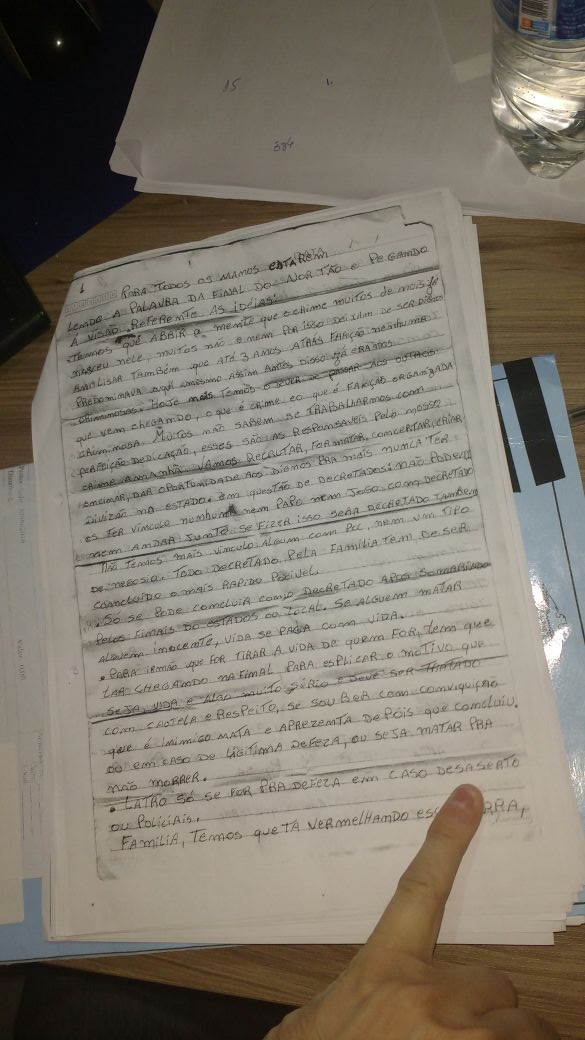 15 1.
384
DATA / /
PARA TODOS OS MANOS ESTAREM
LENDO A PALAVRA DA FINAL DO NORTÃO E PEGANDO
A VISÃO. REFERENTE AS IDÉIAS:
TEMOS QUE ABRIR A MENTE QUE O CRIME MUITOS DE NOIS JÁ
NASCEU NELE, MUITOS NÃO E NEM POR ISSO DEIXAM DE SER DISSO
ANALISAR TAMBÉM QUE ATÉ 3 ANOS ATRÁS FARÇÃO NENHUMA
PREDOMINAVA AQUI AMESMO ASSIM ANTES DISSO JÁ ERAMOS
CRIMIMOSAS. HOJE NOIS TEMOS O DEVER DE PASSAR AOS OUTROS
QUE VEM CHEGANDO, O QUE É CRIME, EO QUE É FARÇÃO ORGANIZADA
CRIMIMOSA. MUITOS NÃO SABEM SE TRABALHARMOS COM
PERFEIÇÃO DEDICAÇÃO, ESSES SÃO AS RESPONSAVEIS PELO NOSSO
CRIME AMANHÃ. VAMOS RECRUTAR, FORMATAR, CONCERTAR, CRIAR
ENCINAR, DAR OPORTUNIDADE AOS DIGNOS PRA MAIS NUNCA TER
DIVIZÃO NO ESTADO. EM QUESTÃO DE DECRETADOS: NÃO PODEM
OS TER VÍNCULO NENHUM NEM PAPO NEM JOGO COM DECRETADO
NEM ANDAR JUNTO SE FIZER ISSO SERÁ DECRETADO TAMBEM
NÃO TEMOS MAIS VINCULO ALGUM COM PCC, NEM UM TIPO
DE NEGOSIO. TODO DECRETADO PELA FAMÍLIA TEM DE SER
CONCLUÍDO O MAIS RAPIDO POSIVEL.
• SO SE PODE COMCLUIR COMO DECRETADO APOS SOMARIADO
PELOS FINAIS DO ESTADOS OU LOCAL. SE ALGUEM MATAR
ALGUEM INOCENTE, VIDA SE PAGA COM VIDA.
• PARA IRMÃO QUE FOR TIRAR A VIDA DE QUEM FOR, TEM QUE
TAR CHEGANDO NA FINAL PARA ESPLICAR O MOTIVO QUE
SEJA, VIDA É ALGO MUITO SÉRIO E DEVE SER TRATADO
COM CAUTELA E RESPEITO, SE SOUBER COM CONVIQUIÇÃO
QUE É INIMIGO MATA E APREZENTA DEPOIS QUE COMCLUIU.
OU EM CASO DE LIGITIMA DEFEZA, OU SEJA MATAR PRA
NÃO MORRER.
• LATRO SÓ SE FOR PRA DEFEZA EM CASO DESASERTO
OU POLICIAIS.
FAMÍLIA, TEMOS QUE TA VERMELHANDO RRA,